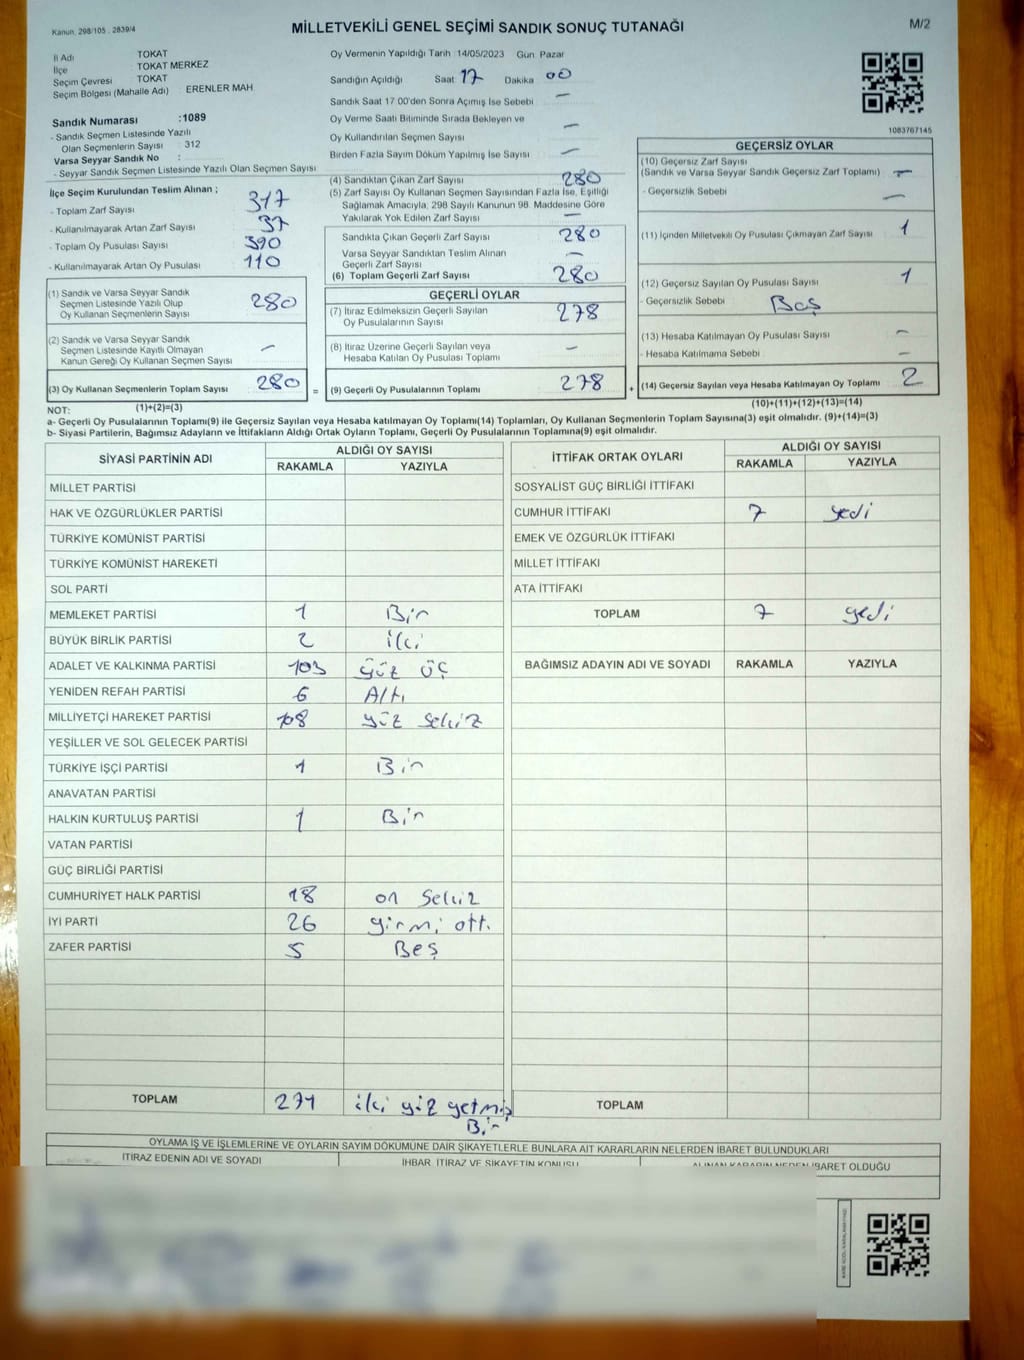 Kanun, 298/105 . 2839/4
MİLLETVEKİLİ GENEL SEÇİMİ SANDIK SONUÇ TUTANAĞI
M/2
İl Adı TOKAT
İlçe TOKAT MERKEZ
Seçim Çevresi TOKAT
Seçim Bölgesi (Mahalle Adı) ERENLER MAH
Sandık Numarası :1089
- Sandık Seçmen Listesinde Yazılı
Olan Seçmenlerin Sayısı 312
Varsa Seyyar Sandık No :
- Seyyar Sandık Seçmen Listesinde Yazılı Olan Seçmen Sayısı
Oy Vermenin Yapıldığı Tarih 14/05/2023 Gün Pazar
Sandığın Açıldığı Saat 17 Dakika 00
Sandık Saat 17 00'den Sonra Açımış İse Sebebi —
Oy Verme Saati Bitiminde Sırada Bekleyen ve
Oy Kullandırılan Seçmen Sayısı —
Birden Fazla Sayım Döküm Yapılmış İse Sayısı —
1083767145
İlçe Seçim Kurulundan Teslim Alınan ;
- Toplam Zarf Sayısı 317
- Kullanılmayarak Artan Zarf Sayısı 37
- Toplam Oy Pusulası Sayısı 390
- Kullanılmayarak Artan Oy Pusulası 110
(1) Sandık ve Varsa Seyyar Sandık
Seçmen Listesinde Yazılı Olup
Oy Kullanan Seçmenlerin Sayısı 280
(2) Sandık ve Varsa Seyyar Sandık
Seçmen Listesinde Kayıtlı Olmayan
Kanun Gereği Oy Kullanan Seçmen Sayısı —
(3) Oy Kullanan Seçmenlerin Toplam Sayısı 280 =
(4) Sandıktan Çıkan Zarf Sayısı 280
(5) Zarf Sayısı Oy Kullanan Seçmen Sayısından Fazla İse, Eşitliği
Sağlamak Amacıyla, 298 Sayılı Kanunun 98. Maddesine Göre
Yakılarak Yok Edilen Zarf Sayısı —
Sandıkta Çıkan Geçerli Zarf Sayısı 280
Varsa Seyyar Sandıktan Teslim Alınan
Geçerli Zarf Sayısı —
(6) Toplam Geçerli Zarf Sayısı 280
GEÇERLİ OYLAR
(7) İtiraz Edilmeksizin Geçerli Sayılan
Oy Pusulalarının Sayısı 278
(8) İtiraz Üzerine Geçerli Sayılan veya
Hesaba Katılan Oy Pusulası Toplamı —
(9) Geçerli Oy Pusulalarının Toplamı 278 +
GEÇERSİZ OYLAR
(10) Geçersiz Zarf Sayısı
(Sandık ve Varsa Seyyar Sandık Geçersiz Zarf Toplamı) —
- Geçersizlik Sebebi —
(11) İçinden Milletvekili Oy Pusulası Çıkmayan Zarf Sayısı 1
(12) Geçersiz Sayılan Oy Pusulası Sayısı 1
- Geçersizlik Sebebi Boş
(13) Hesaba Katılmayan Oy Pusulası Sayısı —
- Hesaba Katılmama Sebebi —
(14) Geçersiz Sayılan veya Hesaba Katılmayan Oy Toplamı 2
NOT: (1)+(2)=(3)
(10)+(11)+(12)+(13)=(14)
a- Geçerli Oy Pusulalarının Toplamı(9) ile Geçersiz Sayılan veya Hesaba Katılmayan Oy Toplamı(14) Toplamları, Oy Kullanan Seçmenlerin Toplam Sayısına(3) eşit olmalıdır. (9)+(14)=(3)
b- Siyasi Partilerin, Bağımsız Adayların ve İttifakların Aldığı Ortak Oyların Toplamı, Geçerli Oy Pusulalarının Toplamına(9) eşit olmalıdır.
SİYASİ PARTİNİN ADI
ALDIĞI OY SAYISI
RAKAMLA YAZIYLA
MİLLET PARTİSİ
HAK VE ÖZGÜRLÜKLER PARTİSİ
TÜRKİYE KOMÜNİST PARTİSİ
TÜRKİYE KOMÜNİST HAREKETİ
SOL PARTİ
MEMLEKET PARTİSİ 1 Bir
BÜYÜK BİRLİK PARTİSİ 2 iki
ADALET VE KALKINMA PARTİSİ 103 yüz üç
YENİDEN REFAH PARTİSİ 6 Altı
MİLLİYETÇİ HAREKET PARTİSİ 108 yüz sekiz
YEŞİLLER VE SOL GELECEK PARTİSİ
TÜRKİYE İŞÇİ PARTİSİ 1 Bir
ANAVATAN PARTİSİ
HALKIN KURTULUŞ PARTİSİ 1 Bir
VATAN PARTİSİ
GÜÇ BİRLİĞİ PARTİSİ
CUMHURİYET HALK PARTİSİ 18 on sekiz
İYİ PARTİ 26 yirmi altı
ZAFER PARTİSİ 5 Beş
TOPLAM 271 iki yüz yetmiş
Bir
İTTİFAK ORTAK OYLARI
ALDIĞI OY SAYISI
RAKAMLA YAZIYLA
SOSYALİST GÜÇ BİRLİĞİ İTTİFAKI
CUMHUR İTTİFAKI 7 yedi
EMEK VE ÖZGÜRLÜK İTTİFAKI
MİLLET İTTİFAKI
ATA İTTİFAKI
TOPLAM 7 yedi
BAĞIMSIZ ADAYIN ADI VE SOYADI RAKAMLA YAZIYLA
TOPLAM
OYLAMA İŞ VE İŞLEMLERİNE VE OYLARIN SAYIM DÖKÜMÜNE DAİR ŞİKAYETLERLE BUNLARA AİT KARARLARIN NELERDEN İBARET BULUNDUKLARI
İTİRAZ EDENİN ADI VE SOYADI İHBAR, İTİRAZ VE ŞİKAYETİN KONUSU ALINAN KARARIN NEDEN İBARET OLDUĞU